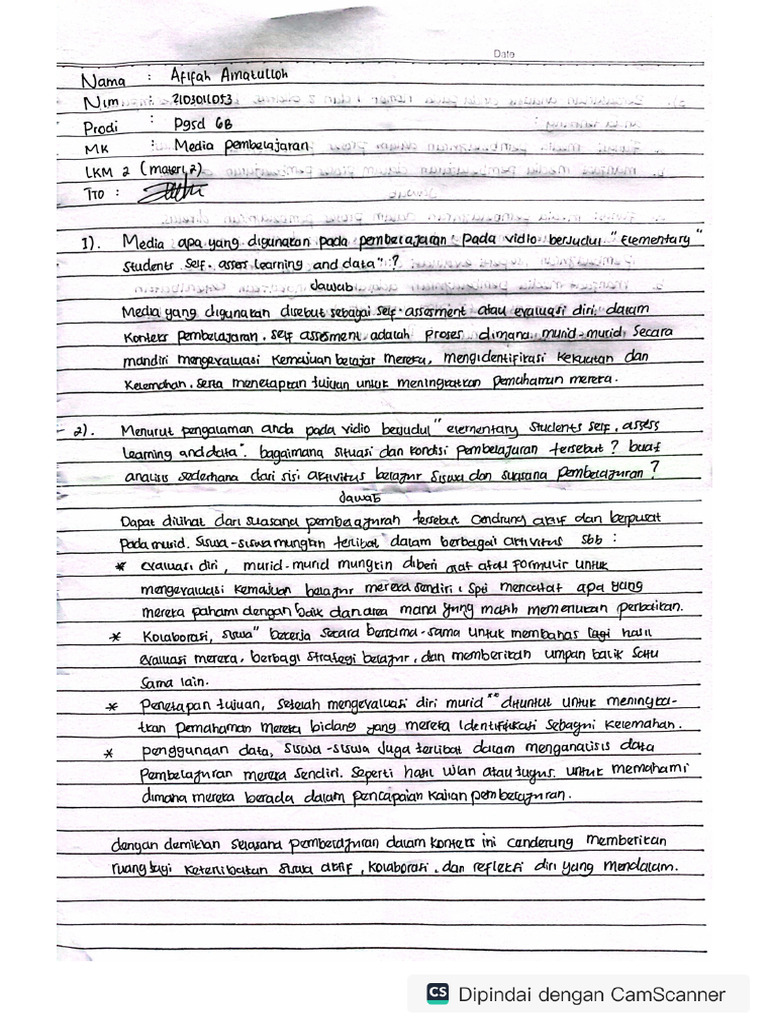 Date
Nama : Afifah Amatulloh
Nim : 2103011053
Prodi : Pgsd 6B
MK : Media pembelajaran
LKM 2 (materi 2)
TTD :
1). Media apa yang digunakan pada pembelajaran pada vidio berjudul "Elementary"
Students self. assess learning and data" ?
Jawab
Media yang digunakan disebut sebagai self-assesment atau evaluasi diri, dalam
konteks pembelajaran. self assesment adalah proses dimana murid-murid secara
mandiri mengevaluasi kemajuan belajar mereka, mengidentifikasi kekuatan dan
kelemahan. serta menetapkan tujuan untuk meningkatkan pemahaman mereka.
2). Menurut pengalaman anda pada vidio berjudul "elementary students self. assess
learning and data". bagaimana situasi dan kondisi pembelajaran tersebut ? buat
analisis sederhana dari sisi aktivitas belajar siswa dan suasana pembelajaran ?
Jawab
Dapat dilihat dari suasana pembelajaran tersebut cendrung aktif dan berpusat
pada murid. Siswa-siswa mungkin terlibat dalam berbagai aktivitas sbb :
* evaluasi diri, murid-murid mungkin diberi alat atau formulir untuk
mengevaluasi kemajuan belajar mereka sendiri, spti mencatat apa yang
mereka pahami dengan baik dan area mana yang masih memerlukan perbaikan.
* Kolaborasi, siswa" bekerja secara bersama-sama untuk membahas lagi hasil
evaluasi mereka, berbagi strategi belajar, dan memberikan umpan balik satu
sama lain.
* Penetapan tujuan, setelah mengevaluasi diri murid"" dituntut untuk meningka-
tkan pemahaman mereka bidang yang mereka identifikasi sebagai kelemahan.
* penggunaan data, siswa-siswa juga terlibat dalam menganalisis data
pembelajaran mereka sendiri. seperti hasil ulan atau tugas. untuk memahami
dimana mereka berada dalam pencapaian kajian pembelajaran.
dengan demikian selasana pembelajaran dalam konteks ini canderung memberikan
ruang bagi keterlibatan siswa aktif, kolaborasi, dan refleksi diri yang mendalam.
CS Dipindai dengan CamScanner